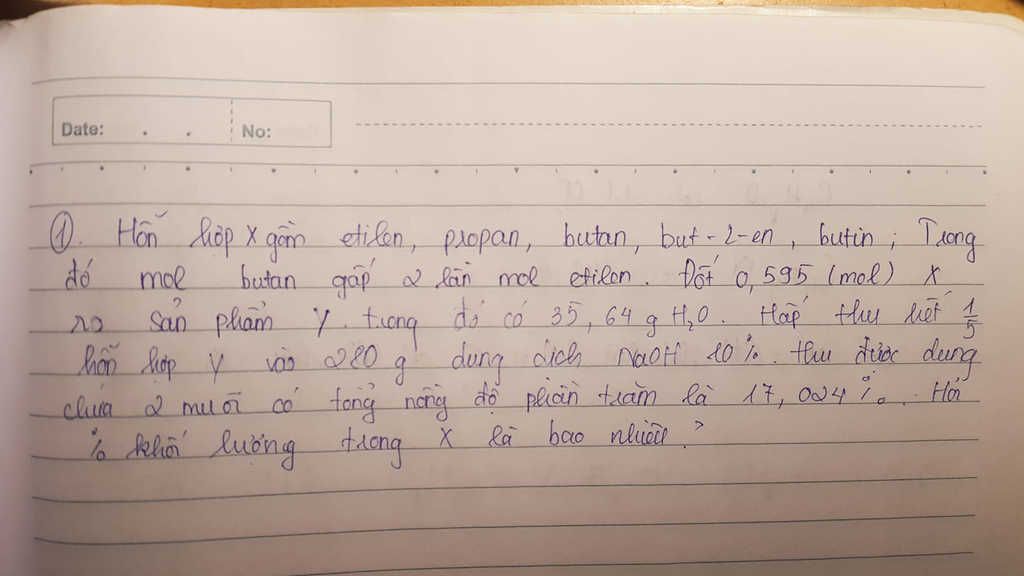 Date: . . No:
①. Hỗn hợp X gồm etilen, propan, butan, but-2-en, butin; Trong
đó mol butan gấp 2 lần mol etilen. Đốt 0,595 (mol) X
ra sản phẩm Y. trong đó có 35,64 g H2O. Hấp thu hết 1/5
hỗn hợp Y vào 280 g dung dịch NaOH 10%. thu được dung
chứa 2 muối có tổng nồng độ phần trăm là 17,024%. Hỏi
% khối lượng trong X là bao nhiêu?